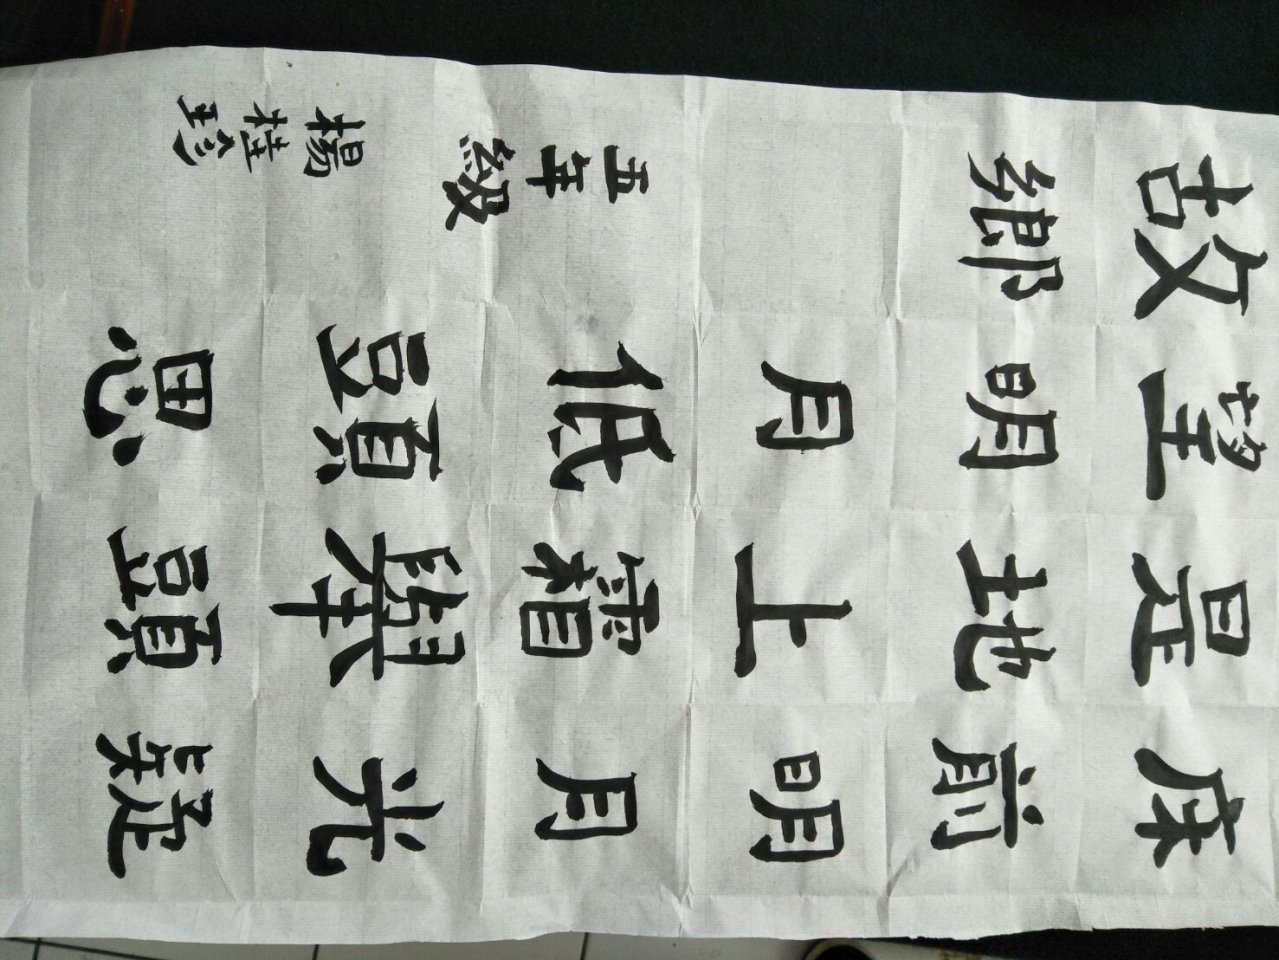 床前明月光疑
是地上霜舉頭
望明月低頭思
故鄉
五年級
楊桂珍